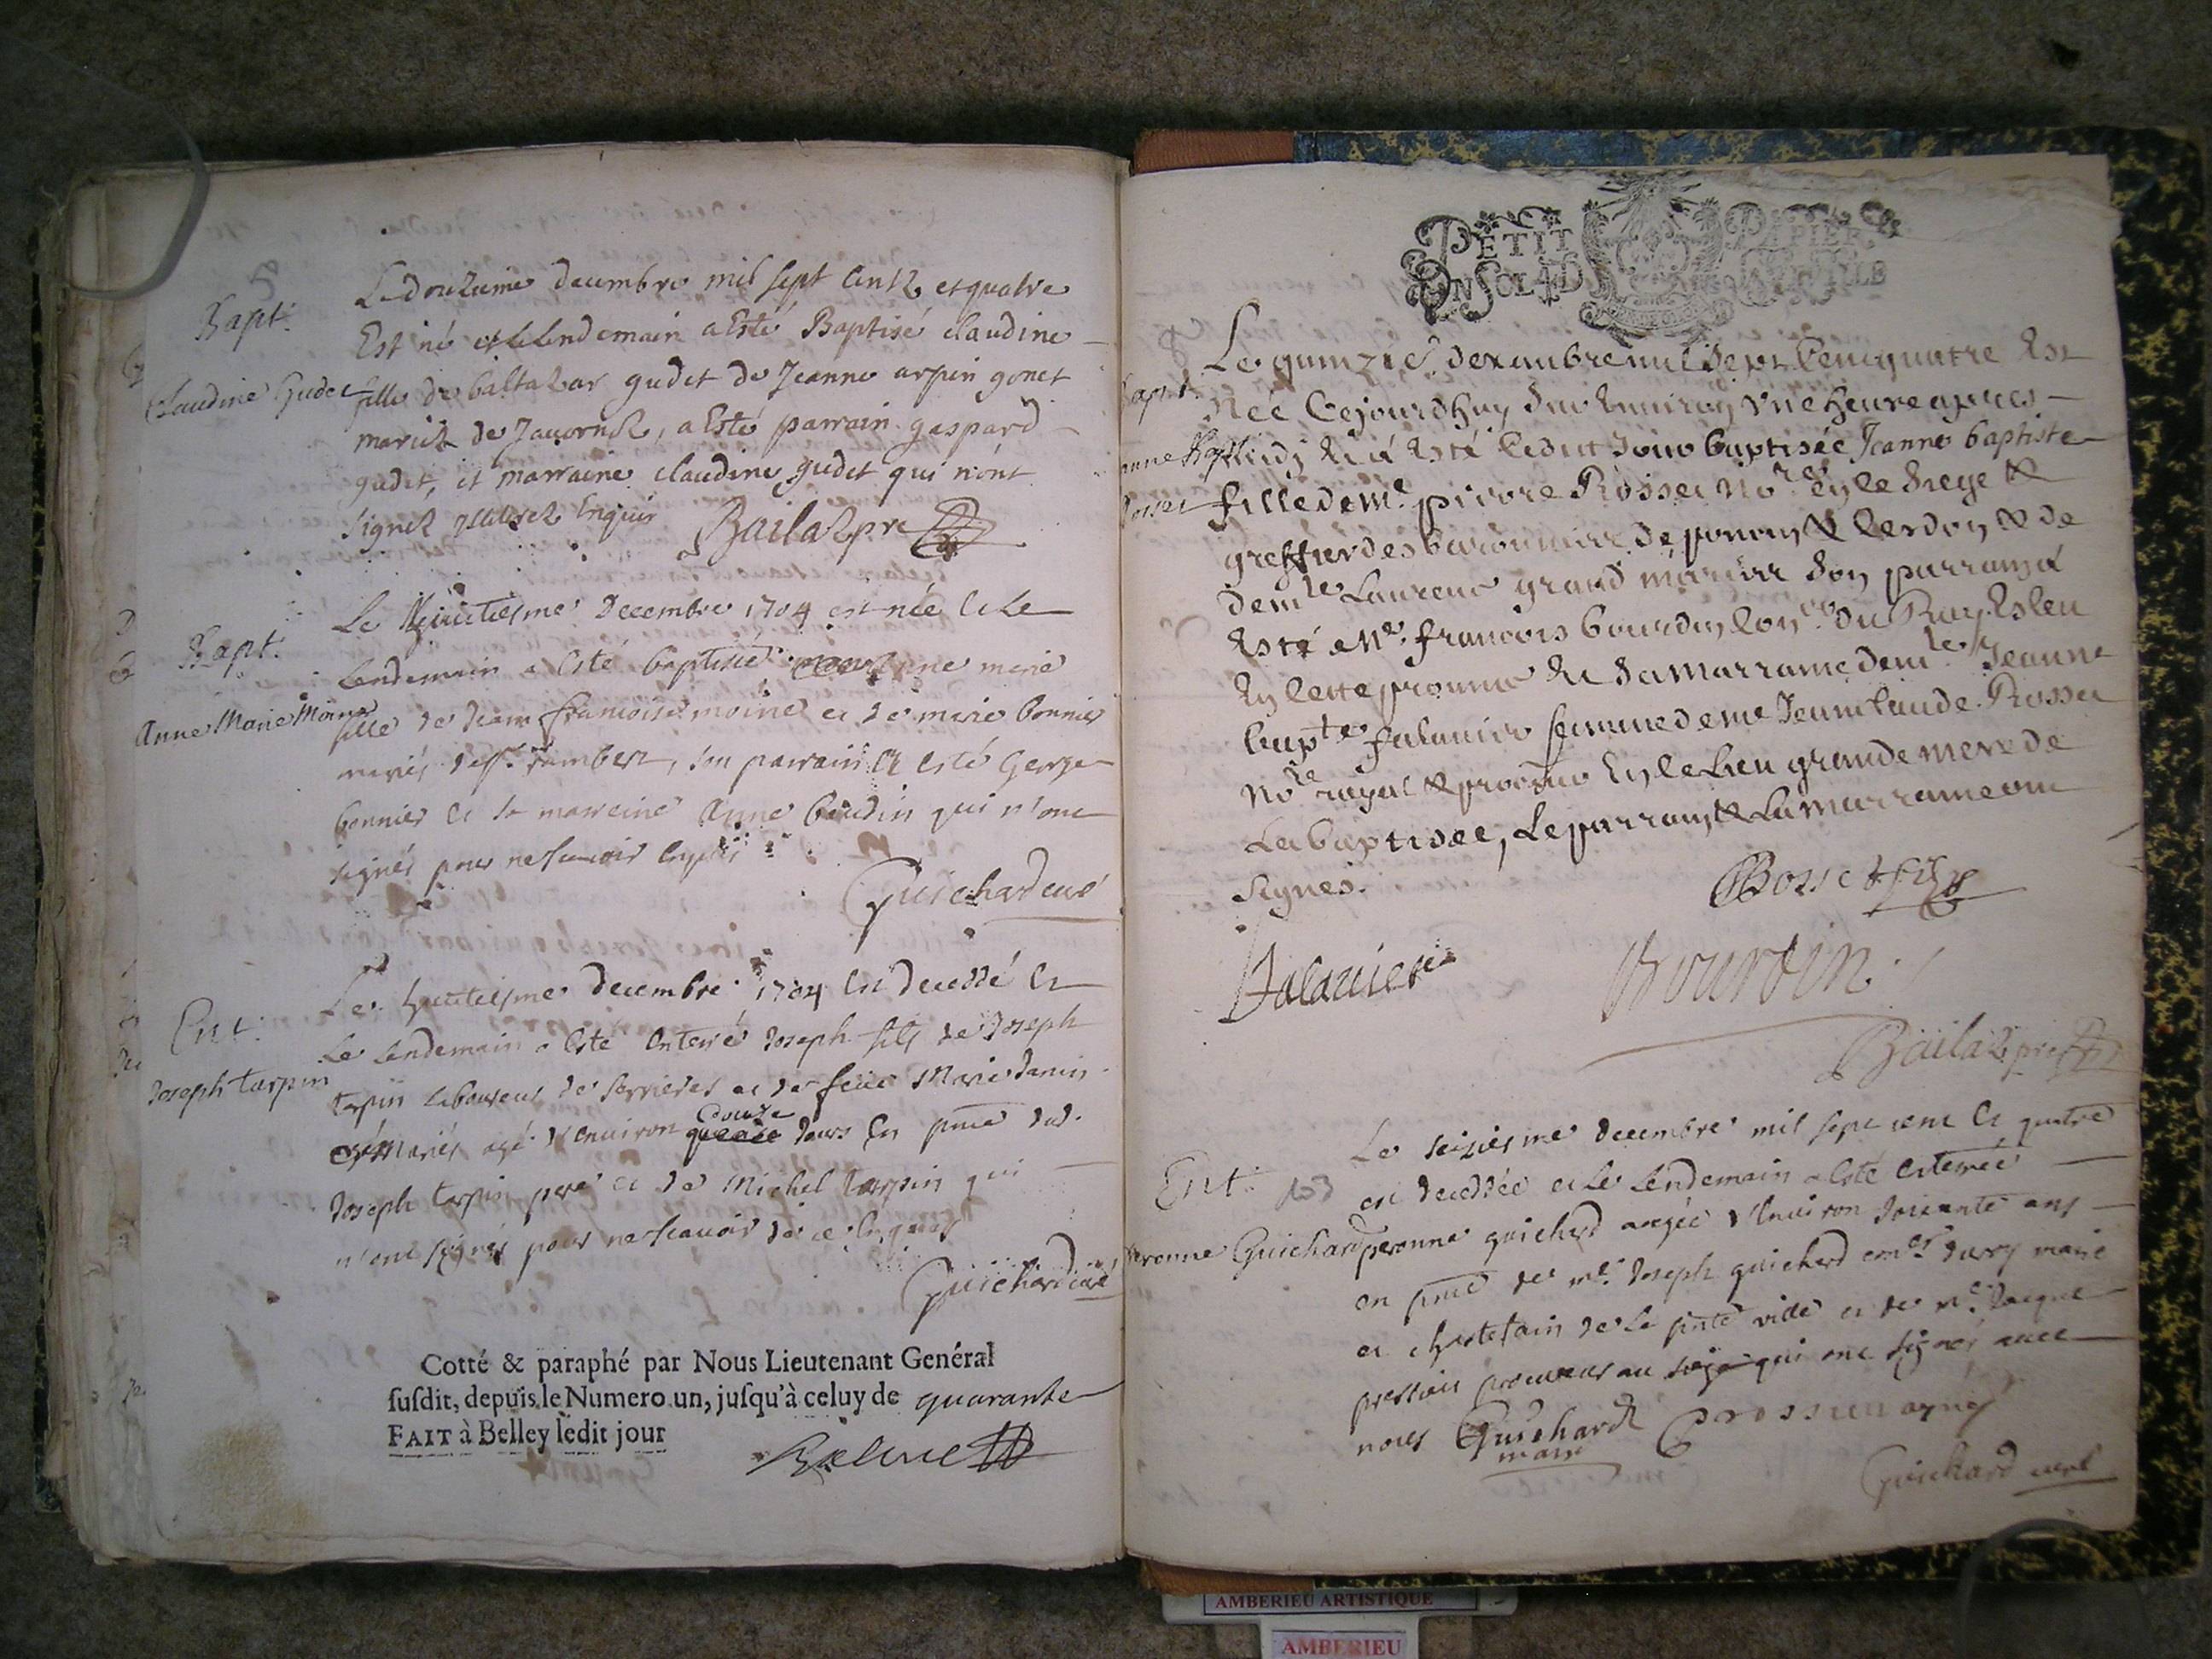 Bapt.
Claudine Gudet
Le douzieme decembre mil sept cents et quatre
Est né et le lendemain a Esté Baptisé claudine
fille de baltazar gudet de Jeanne arpin gonet
mariez de Javornoz, a Esté parrain gaspard
gudet, et marraine claudine gudet qui n'ont
signez Enquis
Bailaz pre
Bapt.
Anne Marie Moine
Le huictiesme Decembre 1704 est née et le
lendemain a esté baptisée anne marie
fille de Jean francois moine et de marie bonnier
mariés de St. rambert, son parrain a esté George
bonnier et sa marreine Anne boudin qui n'ont
signés pour ne scavoir enquis
Guichard curé
Ent.
Joseph tarpin
Le huictiesme decembre 1704 est decedé et
le lendemain a esté enterré Joseph fils de Joseph
tarpin laboureur de serrieres et de feue Marie Janin
mariés agé d'environ douze quinze Jours en pnce dud.
Joseph tarpin pere et de Michel tarpin qui
n'ont signés pour ne scavoir de ce enquis
Guichard curé
Cotté & paraphé par Nous Lieutenant Genéral
susdit, depuis le Numero un, jusqu'à celuy de quarante
FAIT à Belley ledit jour
PETIT PAPIER
UN SOL 4 D LA FEUILLE
Bapt.
Jeanne Bapt
Rosset
Le quinzie. decembre mil sept cent quatre Est
Née Cejourdhuy sur Environ Une heure apres
midy Et a esté ledit Jour baptisée Jeanne baptiste
fille de Me. pierre Rosset Nore. En ce siege &
greffier des baronnies de poncin & Cerdon & de
demle Laurence grand mariez son parrain a
Esté Me. francois bourdin con.er du Roy Esleu
En cette province Et sa marraine demle. Jeanne
bapte falavier femme de me Jean claude Rosset
Nore royal & procur En ce Lieu grande mere de
La baptisée, Le parrain & La marraine ont
signes.
Rosset fils
falavier
Bourdin
Bailaz pre
Ent.
Peronne Guichard
Le seiziesme decembre mil sept cent et quatre
est decedée et le lendemain a esté enterrée
peronne guichard aagée d'environ soixante ans
en pnce de me. Joseph guichard coner du roy maire
et chastelain de la pnte ville et de me. Jacque
pressoin procureur au siege qui ont signés avec
nous Guichard
maire
Guichard curé
AMBERIEU ARTISTIQUE
AMBERIEU